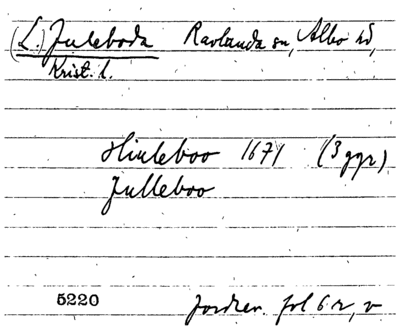 (L.) Juleboda Ravlunda sn, Albo hd,
Krist. l.
Hiuleboo 1671 (3 ggr)
Julleboo
5220 Jordrev. fol 6 r, v